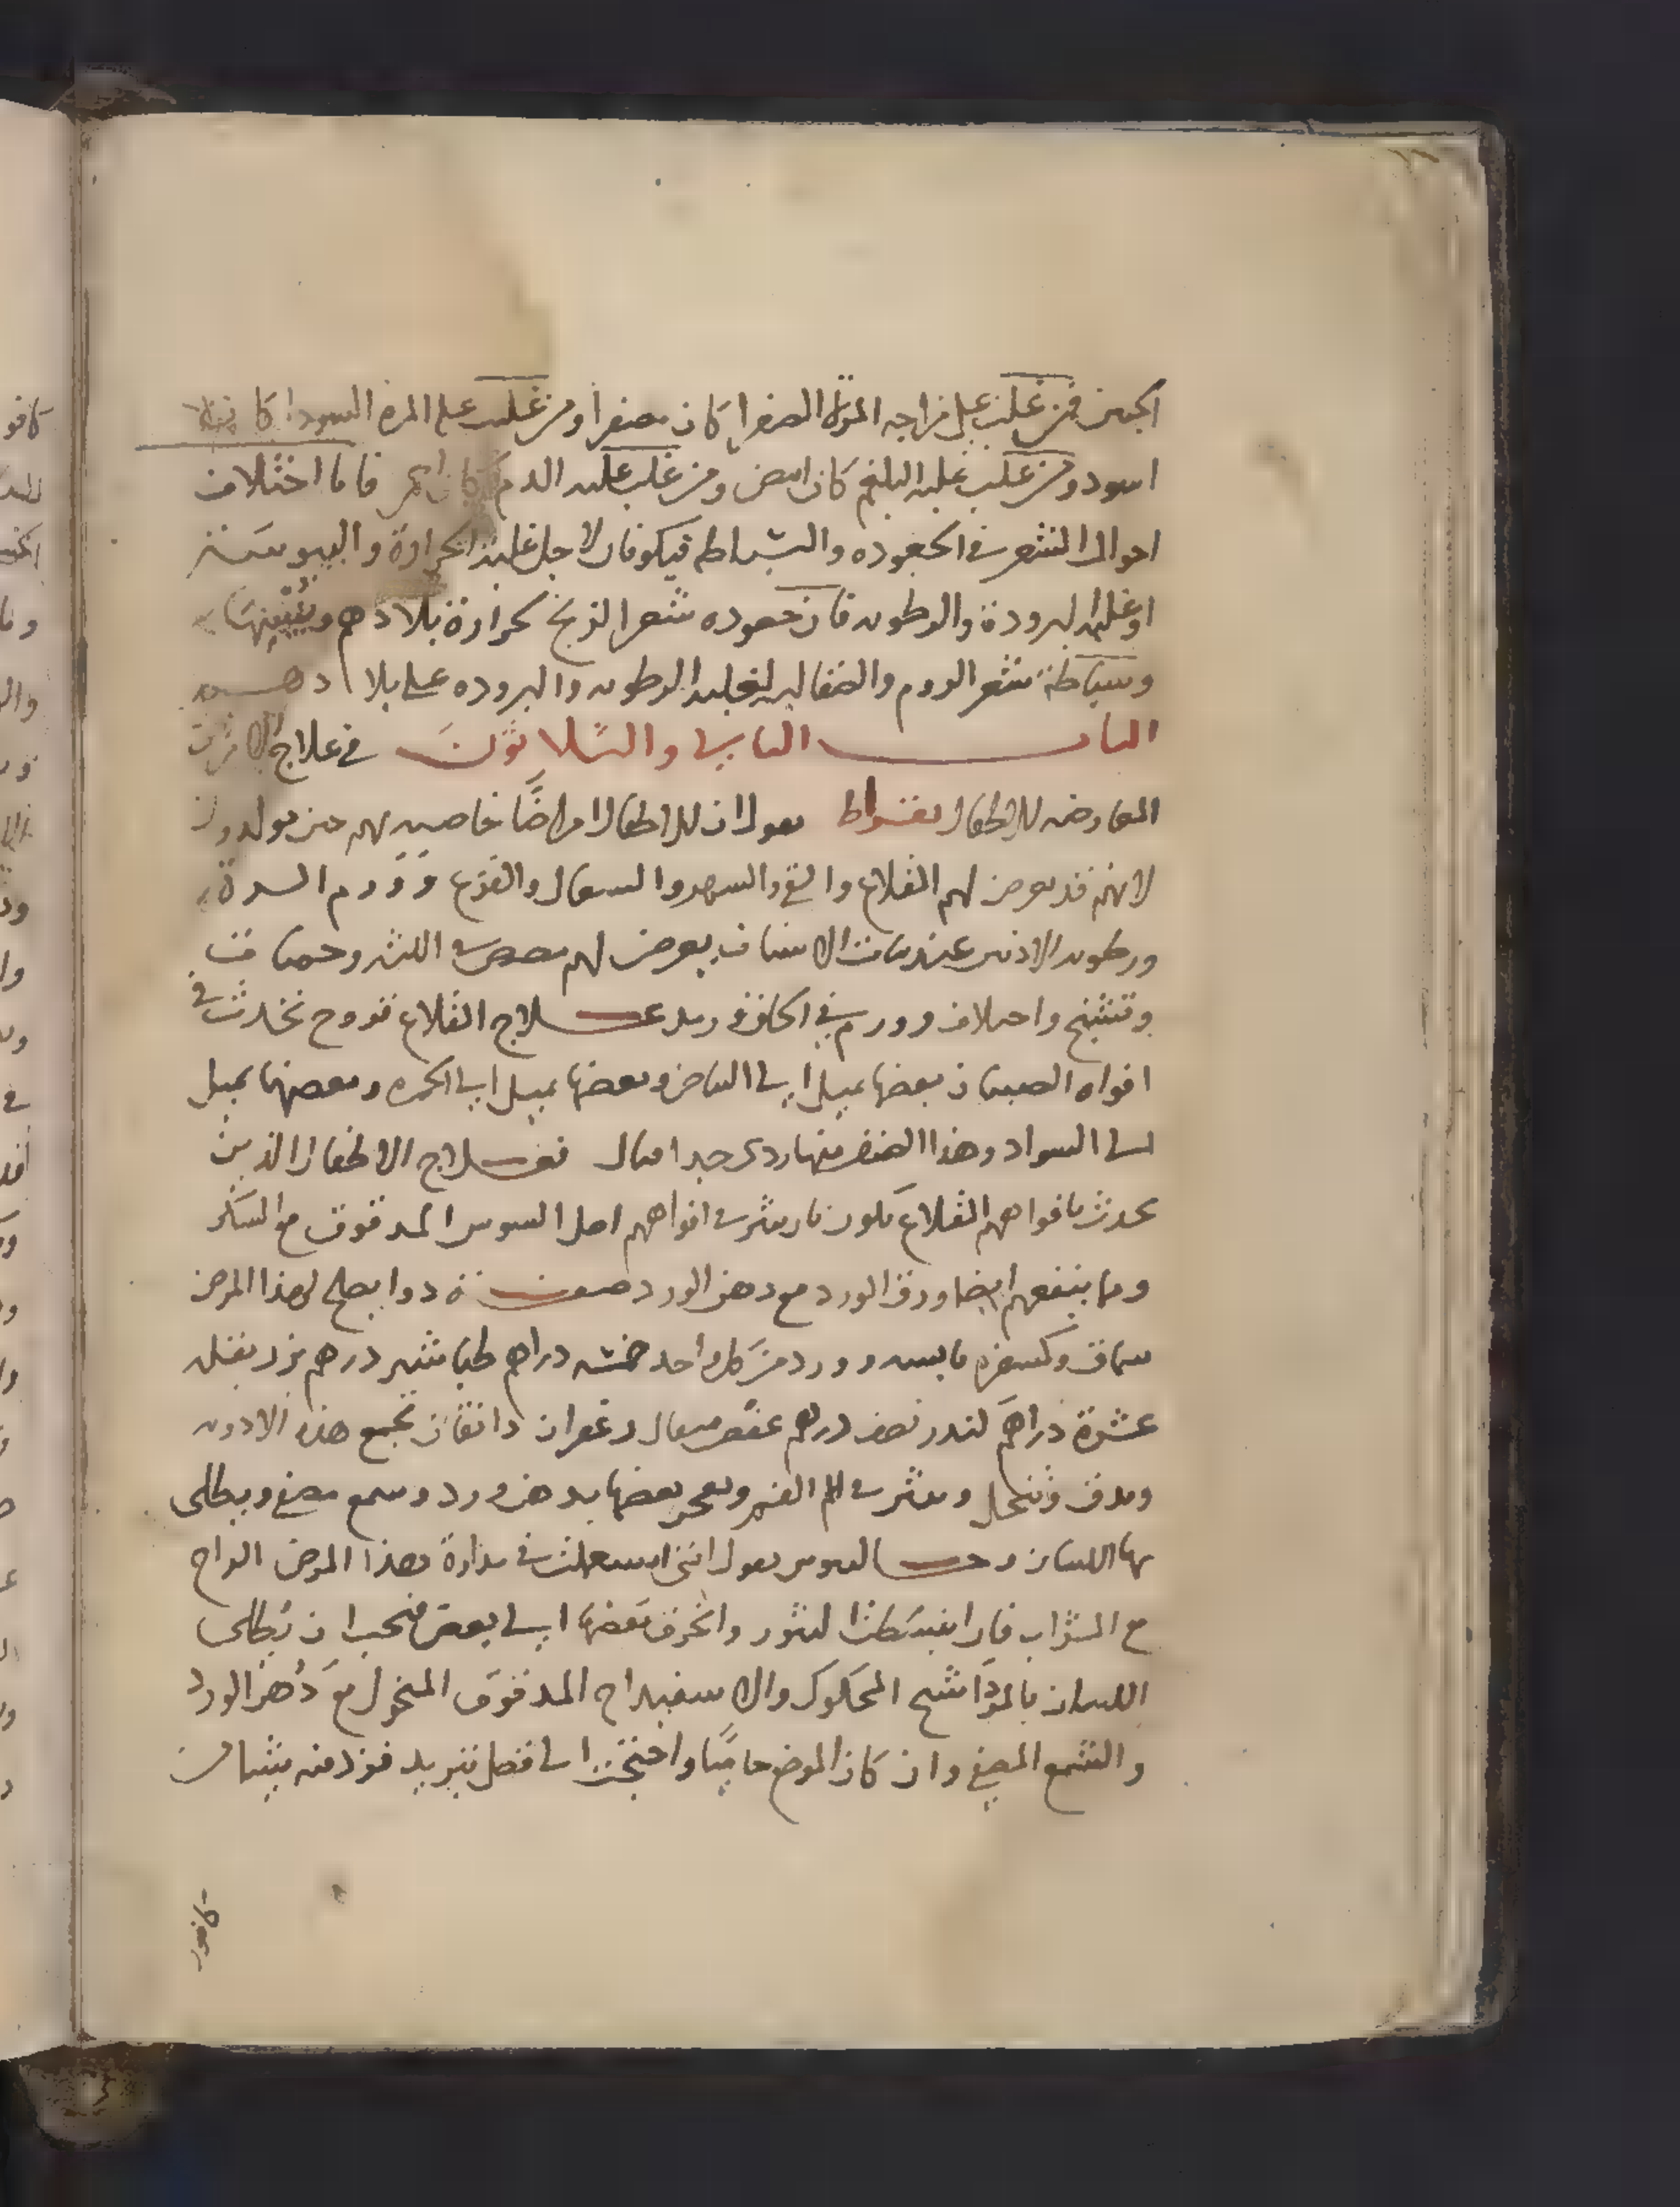 الجنين فمن غلب على مزاجه المرة الصفرا كان مصفرا ومن غلب على المرة السودا كان
اسود ومن غلب عليه البلغم كان ابيض ومن غلب عليه الدم كان احمر فاما اختلاف
احوال الشعر في الجعوده والسباطه فيكونان لاجل غلبة الحرارة والیبوسة
او غلبة البرودة والرطوبه فان جعوده شعر الزنج لحرارة بلادهم ويبسها
وسباطة شعر الروم والصقالبه لغلبة الرطوبه والبروده على بلادهم
الباب الثاني والثلاثون في علاج الامراض
العارضه للاطفال بقراط يقول ان للاطفال امراضًا خاصية بهم حين يولدون
لانهم قد يعرض لهم القلاع والقي والسهر والسعال والفزع وورم السرة
ورطوبه الاذنين عند نبات الاسنان يعرض لهم مضض في اللثه وحميات
وتشنج واختلاف وورم في الحلق علاج القلاع قروح تحدث في
افواه الصبيان بعضها يميل الى البياض وبعضها يميل الى الحمره وبعضها يميل
الى السواد وهذا الصنف منها ردي جدا قتال فعلاج الاطفال الذين
يحدث بافواههم القلاع يكون بان ينثر في افواههم اصل السوس المدقوق مع السكر
ومما ينفعهم ايضا ورق الورد مع دهن الورد صفة دوا يصلح لهذا المرض
سماق وكسفره يابسه وورد من كل واحد خمسه دراهم طباشير درهم بزر بقله
عشرة دراهم كندر نصف درهم عفص مثقال زعفران دانقان تجمع هذه الادويه
وتدق وتنخل وينثر في الفم ويعجن بعضها بدهن ورد وشمع مصفى ويطلى
بها اللسان يقول انني استعملت في مداواة هذا المرض الزاج
مع الشراب فان انبسطت البثور وانخرق بعضها الى بعض فيجب ان يطلى
اللسان بالمرداسنج المحكوك والاسفيداج المدقوق المنخول مع دهن الورد
والشمع المصفى وان كان الموضع حاميًا واحتجت الى فضل تبريد فزد فيه شيئا من
كافور